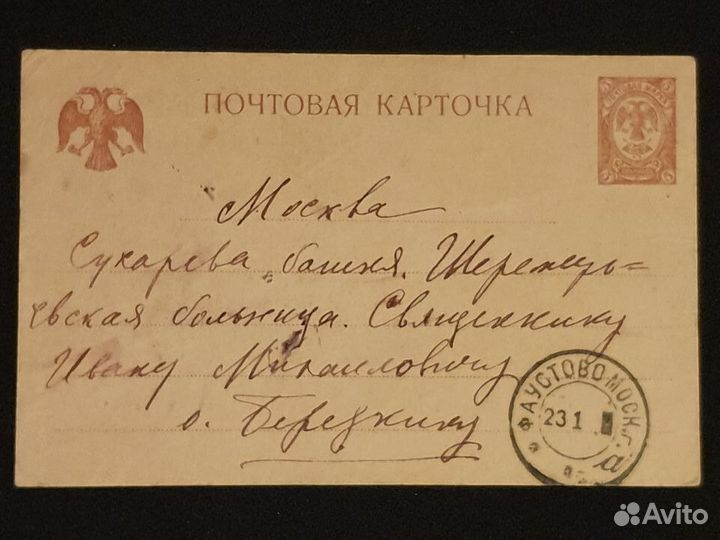 ПОЧТОВАЯ КАРТОЧКА
Москва
Сухарева башня. Шеремет-
евская больница. Священнику
Ивану Михайловичу
о. Березкину
ФАУСТОВО МОСК. Г.
23 1
а
Avito